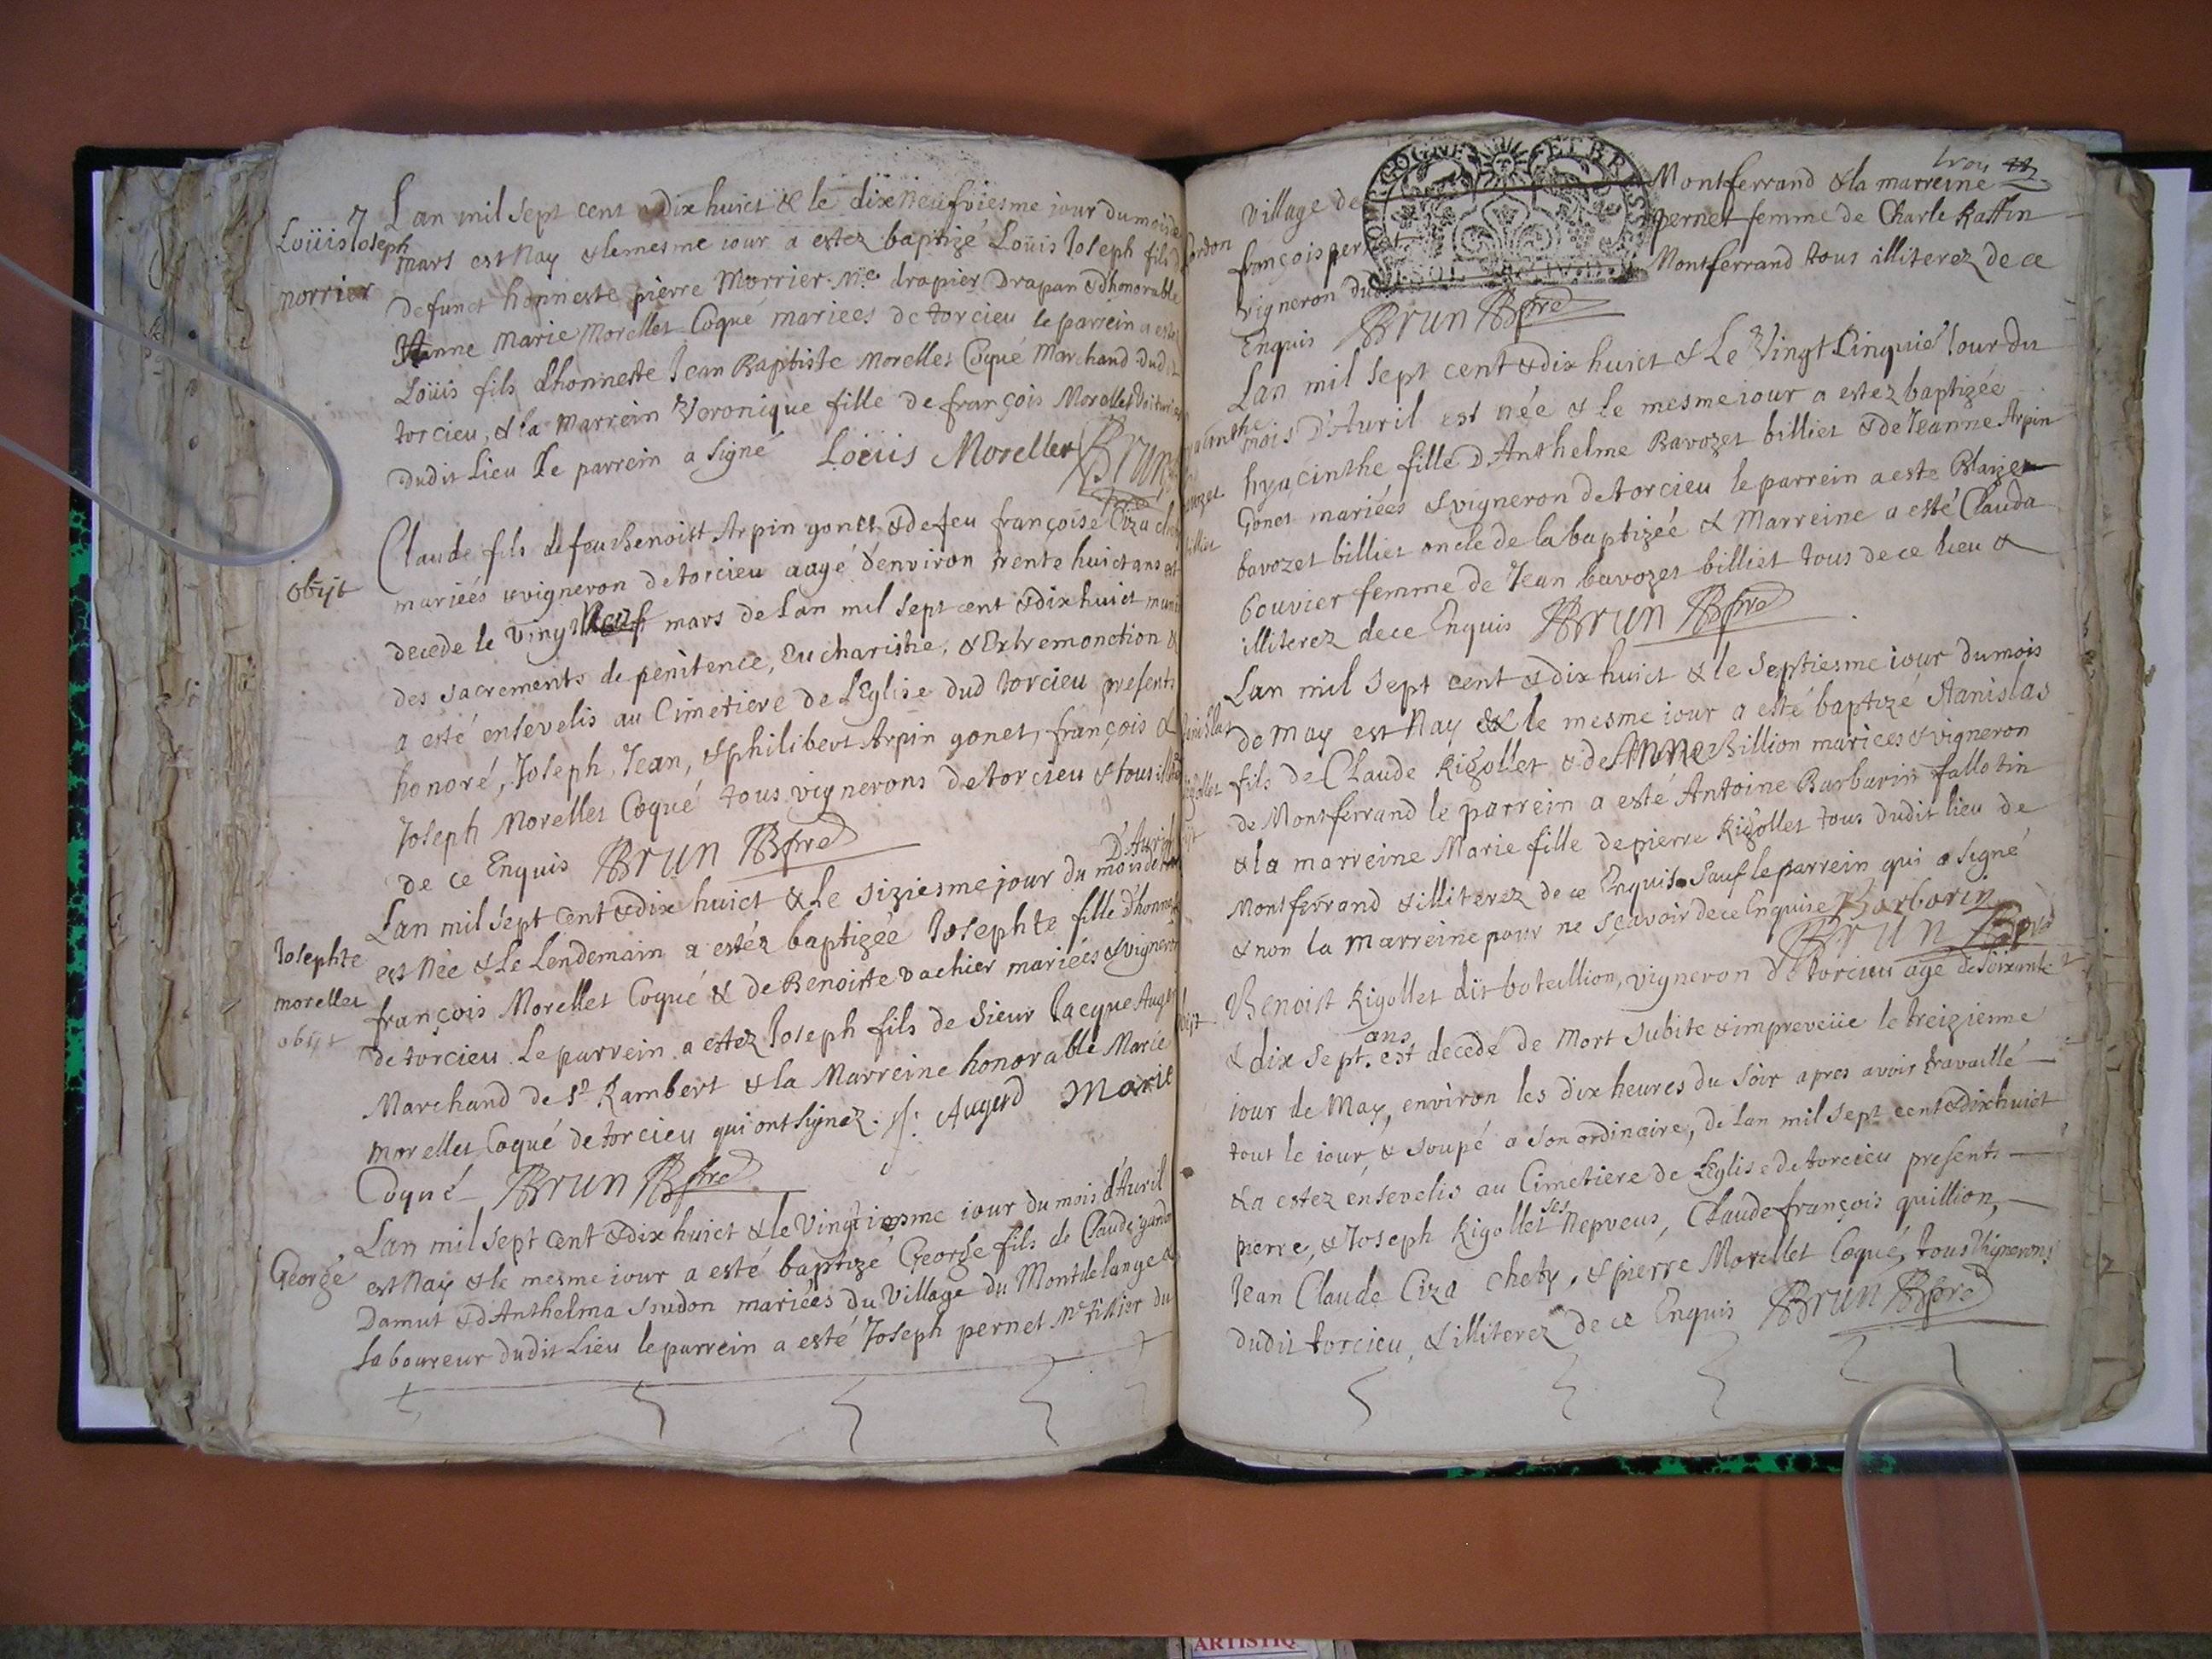 7
Loüis Joseph
morrier
Lan mil sept cent & dix huict & le dix neufviesme iour du mois de
mars est Nay & le mesme iour a estez baptizé Loüis Joseph fils de
defunct honneste pierre Morrier Me drapier Drapan & dhonorable
Anne Marie Morellet Coqué mariees de torcieu le parrein a estez
Loüis fils dhonneste Jean Baptiste Morellet Coqué Marchand Dudit
torcieu, & la Marrein Veronique fille de françois Morellet
Dudit Lieu Le parrein a signé Loüis Morellet Brun
obijt
Claude fils de feu Benoist Arpin gonet & de feu françoise Ciza
mariées & vigneron de torcieu aagé d'environ trente huict ans est
decede le vingt neuf mars de Lan mil sept cent & dix huict muni
des sacrements de penitence, Eucharistie, & Extremonction &
a esté ensevelis au Cimetiere de LEglise dud torcieu presents
honoré, Joseph, Jean, & philibert Arpin gonet, françois &
Joseph Morellet Coqué tous vignerons de torcieu & tous
de ce Enquis Brun Bpre
D'Auril
Josephte
morellet
obijt
Lan mil sept cent & dix huict & Le siziesme jour du mois
est Née & Le Lendemain a estéz baptizée Josephte fille d'honneste
françois Morellet Coqué & de Benoitte vachier mariées & vigneron
de torcieu. Le parrein a estez Joseph fils de Sieur Jacque Auger
Marchand de St Rambert & la Marreine honorable Marie
morellet Coqué de torcieu qui ont signez. Augerd Marie
Coqué Brun Bpre
George
Lan mil sept cent & dix huict & le vingtiesme iour du mois d'Auril
est Nay & le mesme iour a esté baptizé George fils de Claude
Damut & d'Anthelma mariées du Village du Montdelange &
laboureur dudit Lieu le parrein a esté Joseph pernet Me du
trois
Village de Montferrand & la marreine
françois pernet femme de Charle Raffin
vigneron dud Montferrand tous illiterez de ce
Enquis Brun Bpre
Lan mil sept cent & dix huict & Le Vingt Cinquie Iour du
mois D'Auril est née & le mesme iour a estez baptizée
hyacinthe fille D'Anthelme Bavozet billiet & de Jeanne Arpin
Gonet mariées & vigneron de torcieu le parrein a este Blaize
bavozet billiet oncle de la baptizée & Marreine a esté Clauda
bouvier femme de Jean bavozet billiet tous de ce lieu &
illiterez de ce Enquis Brun Bpre
Lan mil sept cent & dix huict & le septiesme iour du mois
de may est Nay & le mesme iour a esté baptizé Stanislas
fils de Claude Rigollet & de Anne Billion mariées & vigneron
de Montferrand le parrein a esté Antoine Barbarin fallotin
& la marreine Marie fille de pierre Rigollet tous dudit lieu de
Montferrand & illiterez de ce Enquis Sauf le parrein qui a signé
& non la marreine pour ne sçavoir de ce Enquise Barbarin
Brun Bpre
Benoist Rigollet dit boteillion, vigneron de torcieu agé de soixante
& dix sept ans est decedé de Mort subite & impreveüe le treiziesme
iour de May, environ les dix heures du soir apres avoir travaillé
tout le iour, & soupé a son ordinaire, de Lan mil sept cent & dix huict
& a estez ensevelis au Cimetiere de LEglise de torcieu presents
pierre, & Joseph Rigollet ses Nepveus, Claude françois quillion,
Jean Claude Ciza Chety, & pierre Morellet Coqué, tous Vignerons
dudit torcieu, & illiterez de ce Enquis Brun Bpre
ARTISTIQ